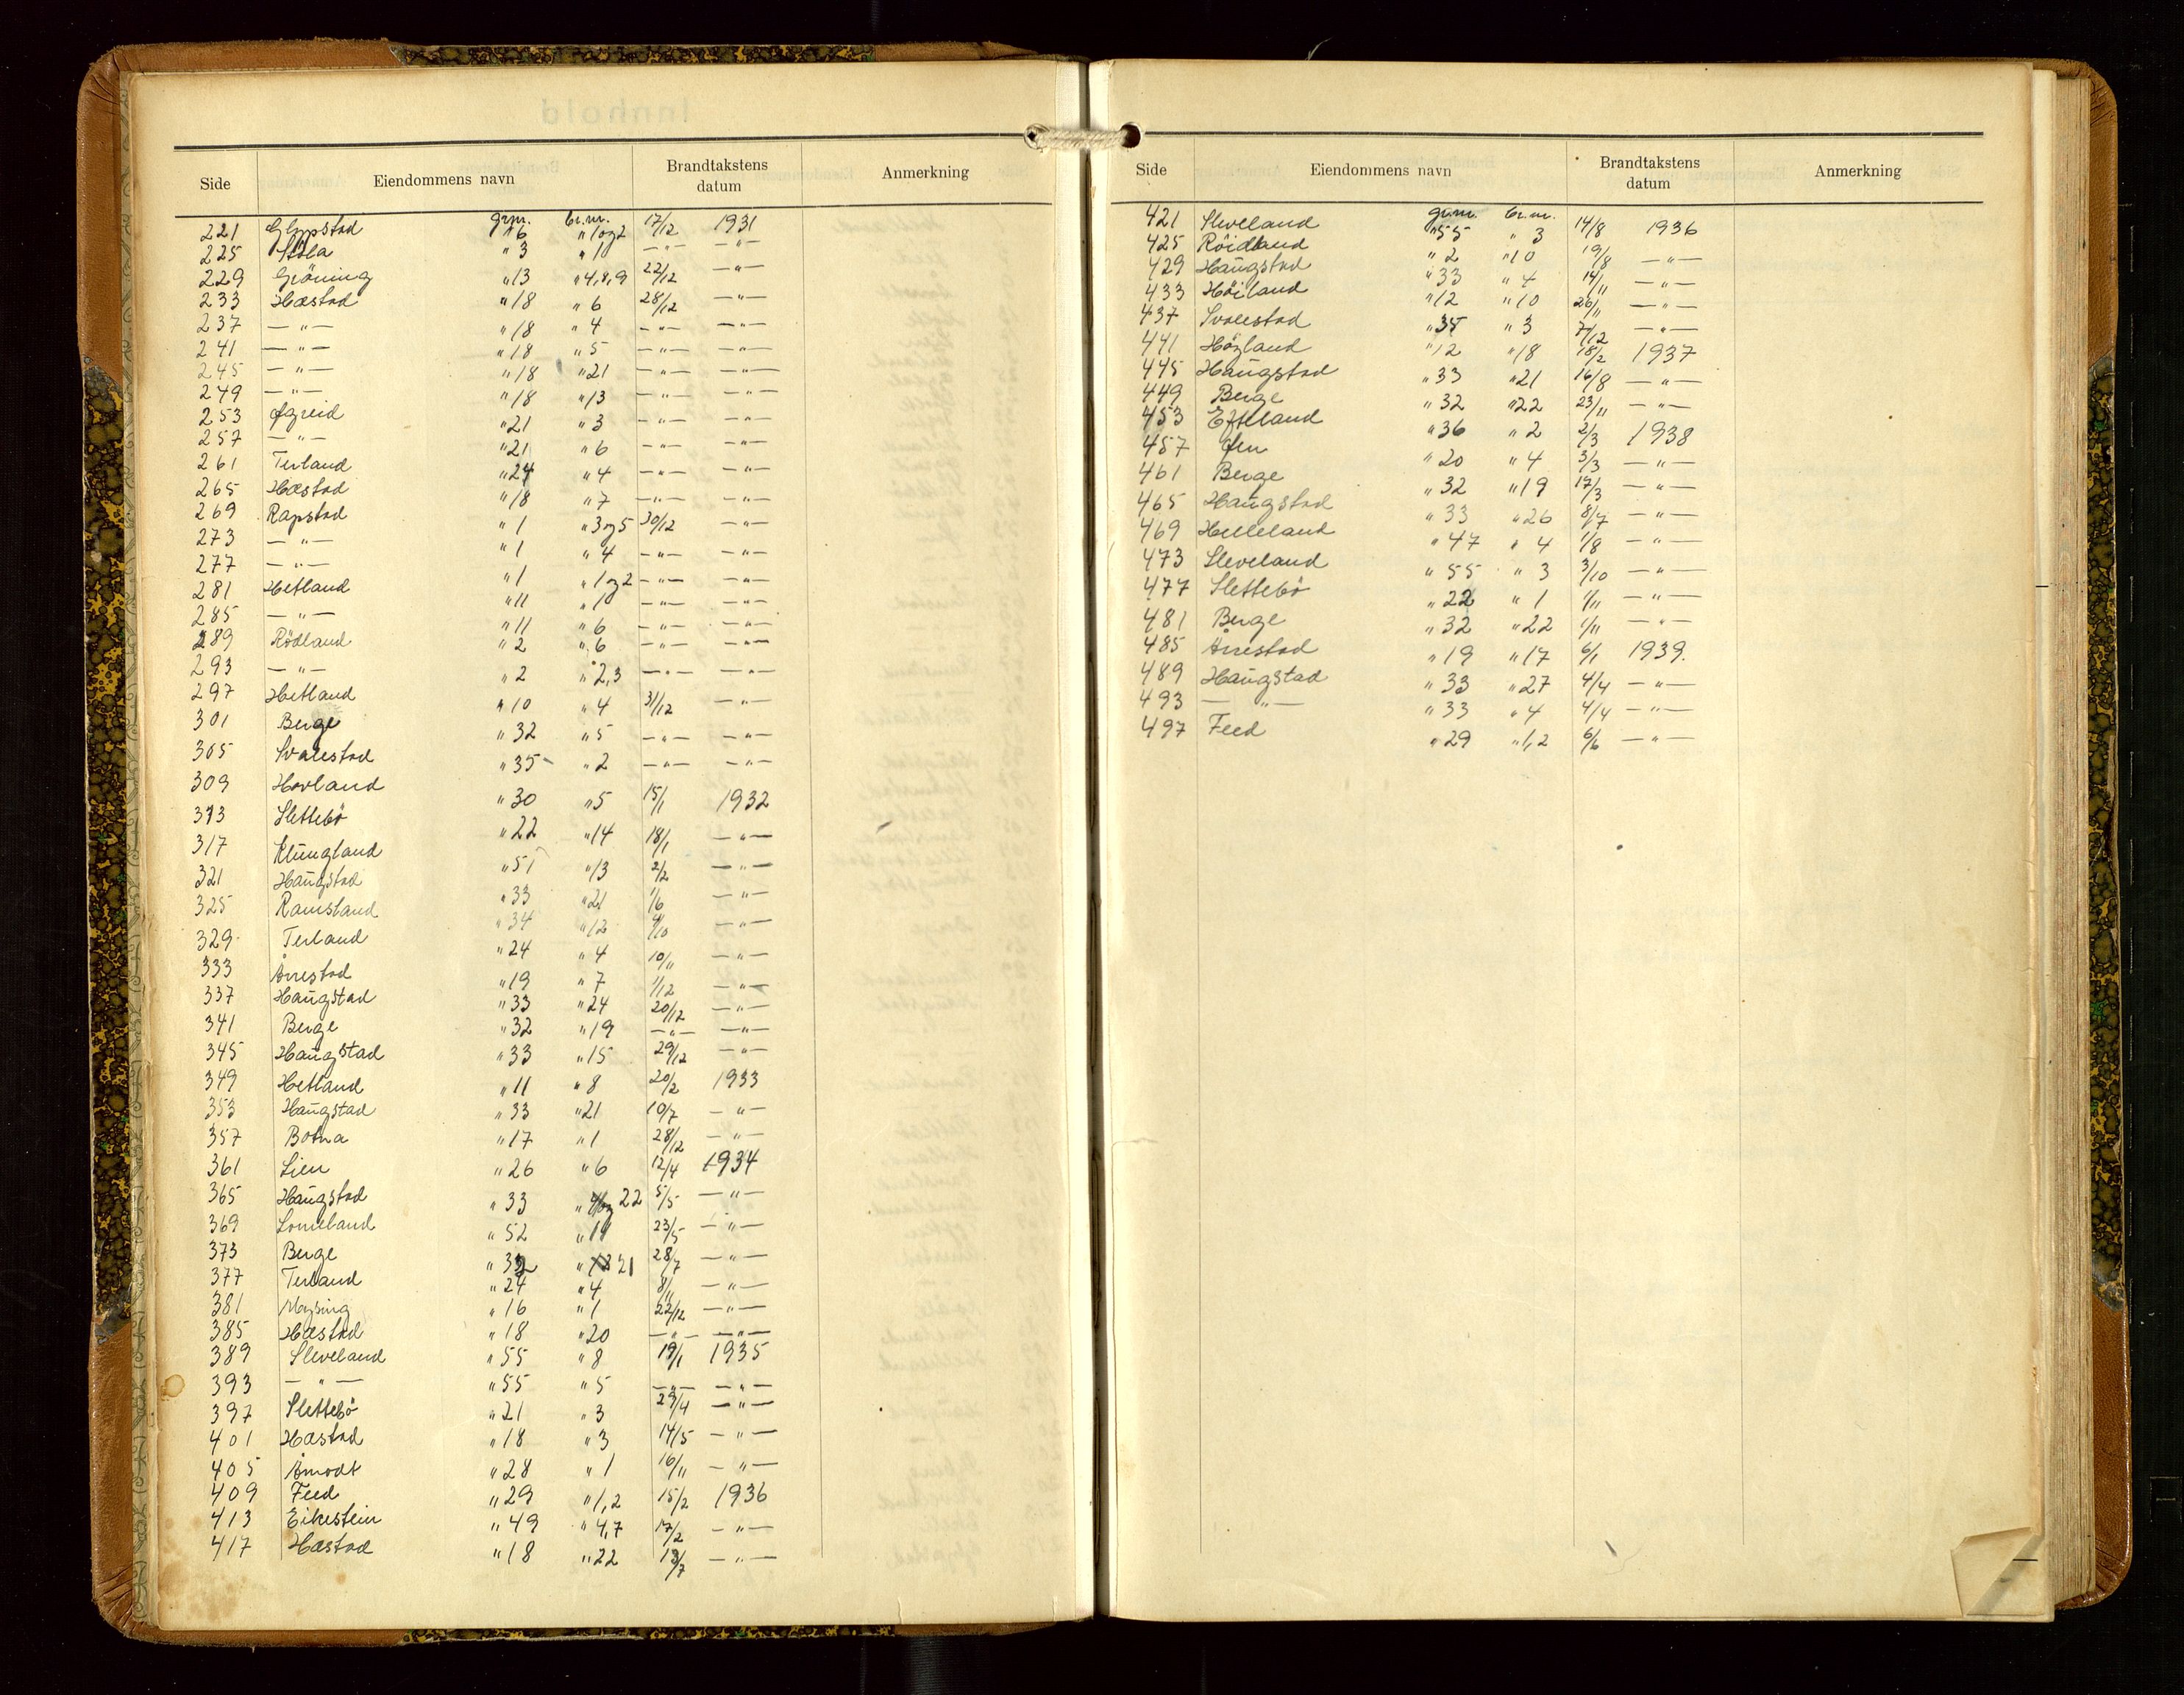 Side Eiendommens navn Brandtakstens datum Anmerkning
grn. br.n.
221 Glypstad " 6 " 1 og 2 17/12 1931
225 Stöla " 3 " 1 — " — — " —
229 Gröning " 13 " 4, 8, 9 22/12 — " —
233 Hæstad " 18 " 6 28/12 — " —
237 — " — " 18 " 4 — " — — " —
241 — " — " 18 " 5 — " — — " —
245 — " — " 18 " 21 — " — — " —
249 — " — " 18 " 13 — " — — " —
253 Øgreid " 21 " 3 — " — — " —
257 — " — " 21 " 6 — " — — " —
261 Terland " 24 " 4 — " — — " —
265 Hæstad " 18 " 7 — " — — " —
269 Rapstad " 1 " 3 og 5 30/12 — " —
273 — " — " 1 " 4 — " — — " —
277 — " — " 1 " 1 og 2 — " — — " —
281 Hetland " 11 " 1 — " — — " —
285 — " — " 11 " 6 — " — — " —
289 Rödland " 2 " 6 — " — — " —
293 — " — " 2 " 2,3 — " — — " —
297 Hetland " 10 " 4 31/12 — " —
301 Berge " 32 " 5 — " — — " —
305 Svalestad " 35 " 2 — " — — " —
309 Hovland " 30 " 5 15/1 1932
313 Slettebö " 22 " 14 18/1 — " —
317 Klungland " 51 " 13 2/2 — " —
321 Haugstad " 33 " 21 1/6 — " —
325 Ramsland " 34 " 12 4/10 — " —
329 Terland " 24 " 4 10/11 — " —
333 Årrestad " 19 " 7 1/12 — " —
337 Haugstad " 33 " 24 20/12 — " —
341 Berge " 32 " 19 — " — — " —
345 Haugstad " 33 " 15 29/12 — " —
349 Hetland " 11 " 8 20/2 1933
353 Haugstad " 33 " 21 10/7 — " —
357 Botna " 17 " 1 28/12 — " —
361 Lien " 26 " 6 12/4 1934
365 Haugstad " 33 " 4 og 22 5/5 — " —
369 Lomeland " 52 " 11 23/5 — " —
373 Berge " 32 " 21 28/7 — " —
377 Terland " 24 " 4 8/11 — " —
381 Mysing " 16 " 1 22/12 — " —
385 Hæstad " 18 " 20 — " — — " —
389 Sleveland " 55 " 8 19/1 1935
393 — " — " 55 " 5 — " — — " —
397 Slettebö " 21 " 3 29/4 — " —
401 Hæstad " 18 " 3 14/5 — " —
405 Åmodt " 28 " 1 16/11 — " —
409 Feed " 29 " 1,2 15/2 1936
413 Eikestein " 49 " 4,7 17/2 — " —
417 Hæstad " 18 " 22 13/7 — " —
Side Eiendommens navn Brandtakstens datum Anmerkning
grn. br.n.
421 Sleveland " 55 " 3 14/8 1936
425 Röidland " 2 " 10 19/8 — " —
429 Haugstad " 33 " 4 14/11 — " —
433 Höiland " 12 " 10 26/11 — " —
437 Svalestad " 35 " 3 7/12 — " —
441 Höyland " 12 " 18 18/2 1937
445 Haugstad " 33 " 21 16/8 — " —
449 Berge " 32 " 22 23/11 — " —
453 Efteland " 36 " 2 2/3 1938
457 Øen " 20 " 4 3/3 — " —
461 Berge " 32 " 19 17/3 — " —
465 Haugstad " 33 " 26 8/7 — " —
469 Helleland " 47 " 4 1/8 — " —
473 Sleveland " 55 " 3 3/10 — " —
477 Slettebö " 22 " 1 1/11 — " —
481 Berge " 32 " 22 1/11 — " —
485 Årrestad " 19 " 17 6/1 1939.
489 Haugstad " 33 " 27 4/4 — " —
493 — " — " 33 " 4 4/4 — " —
497 Feed " 29 " 1,2 6/6 — " —